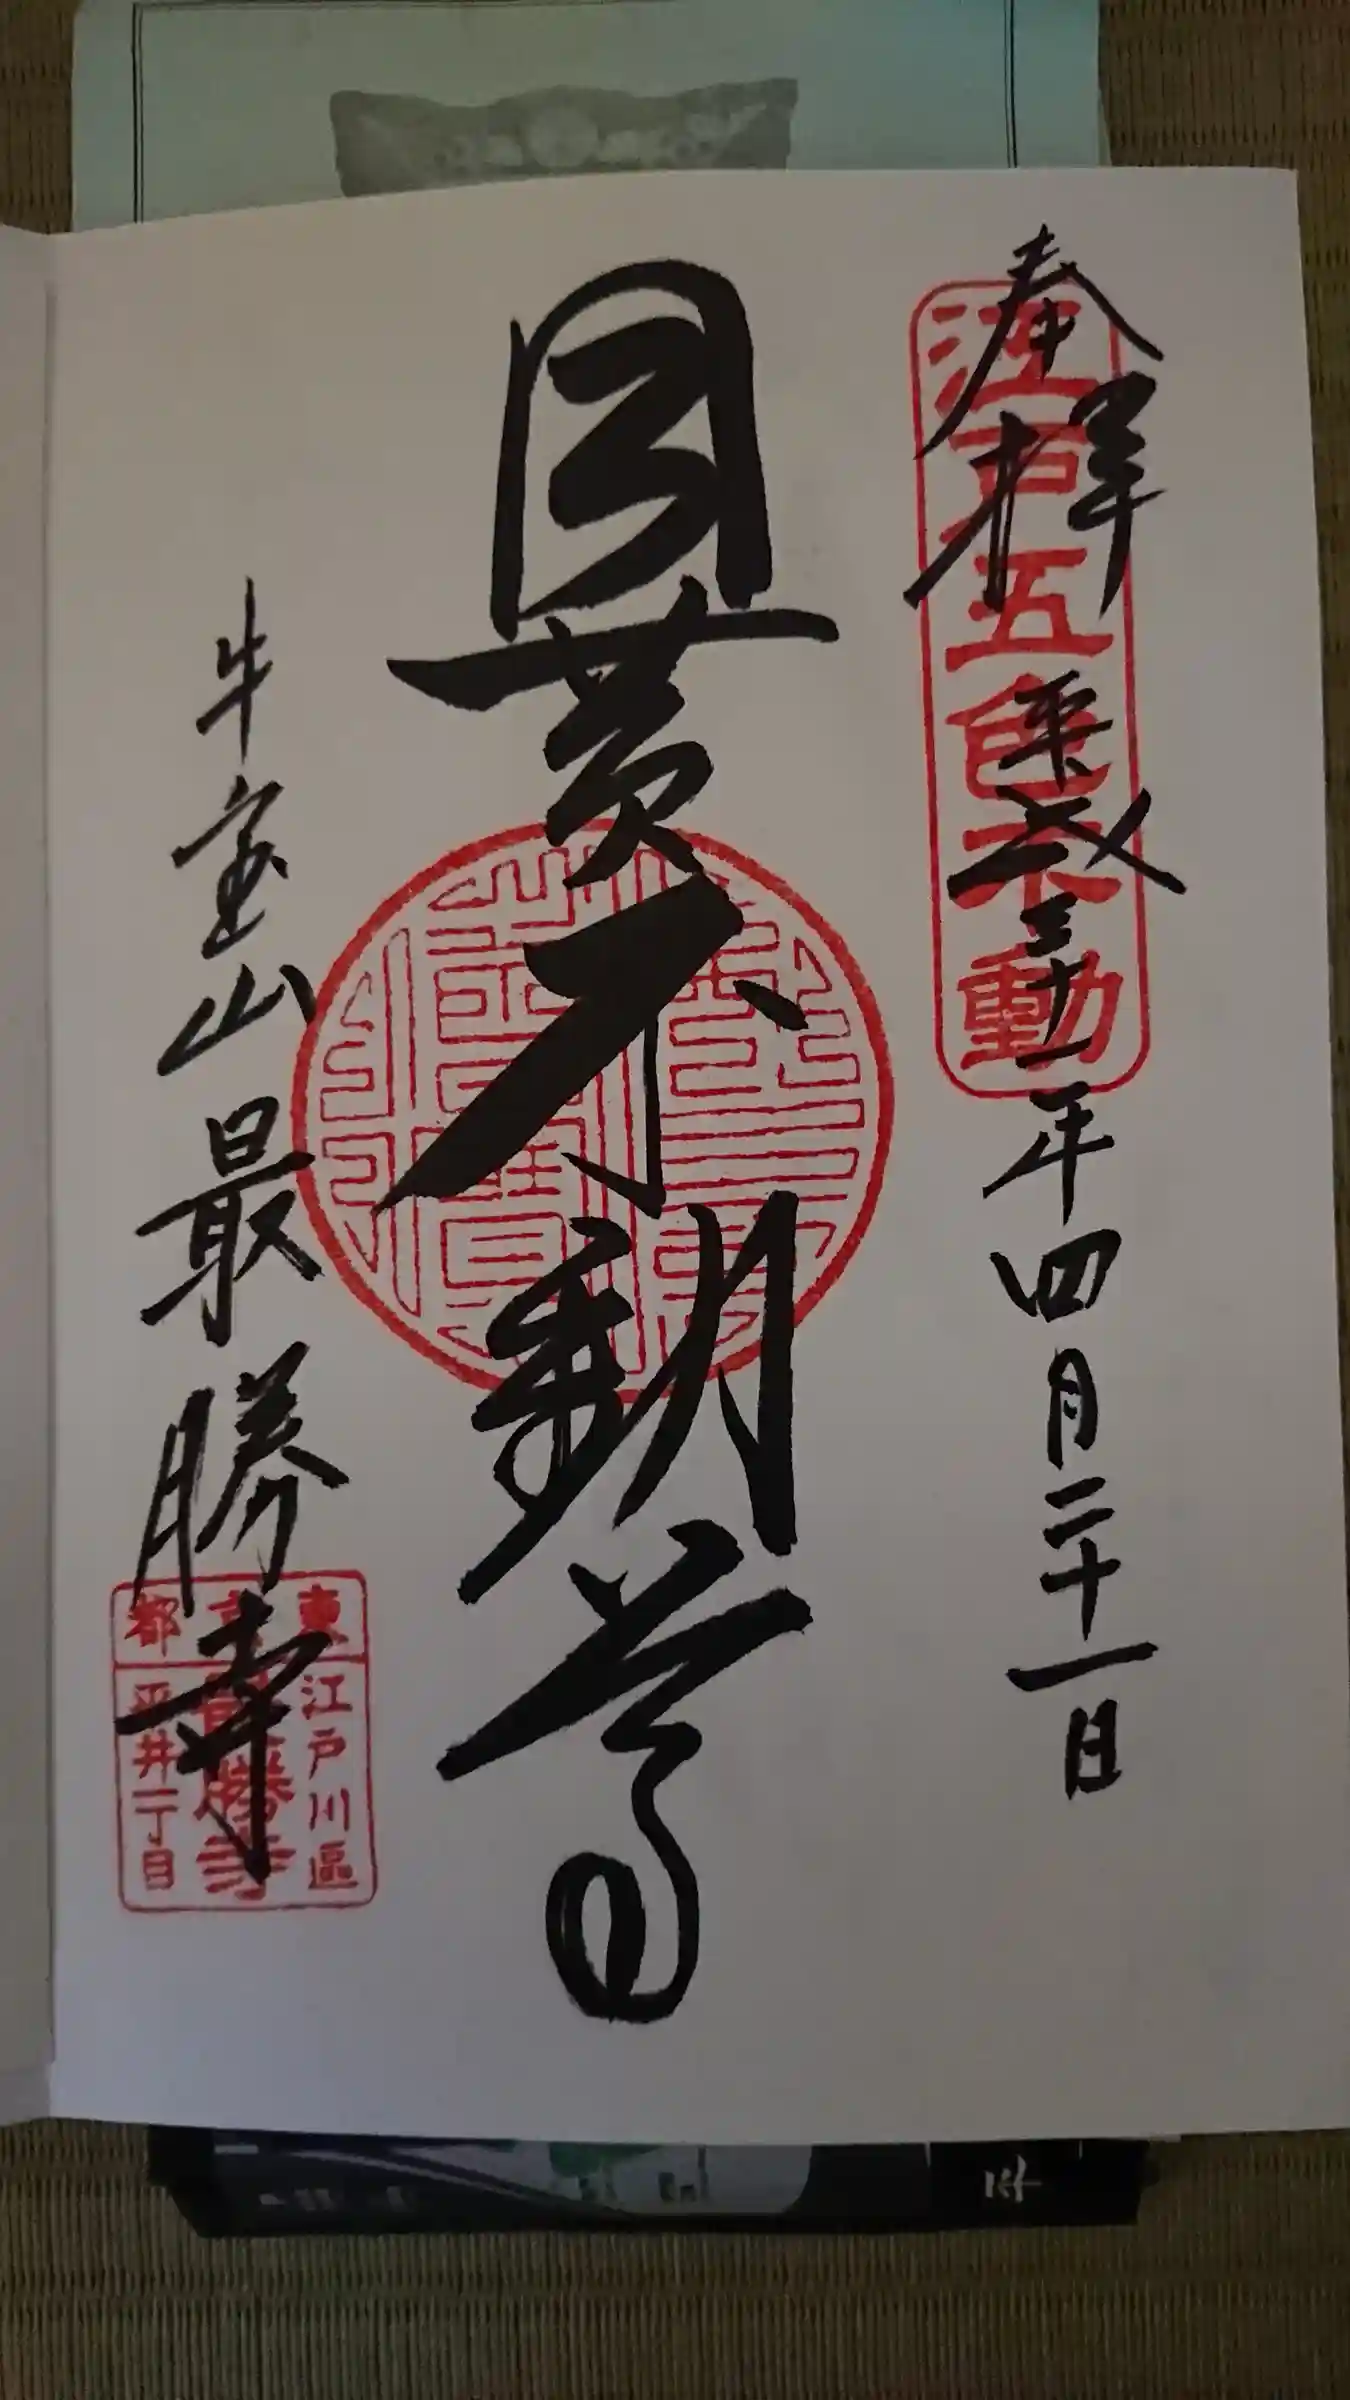 奉拝
江戸五色不動
平成三十一年四月二十一日
目黄不動尊
牛宝山
最勝寺
東京都
江戸川區
最勝寺
平井一丁目